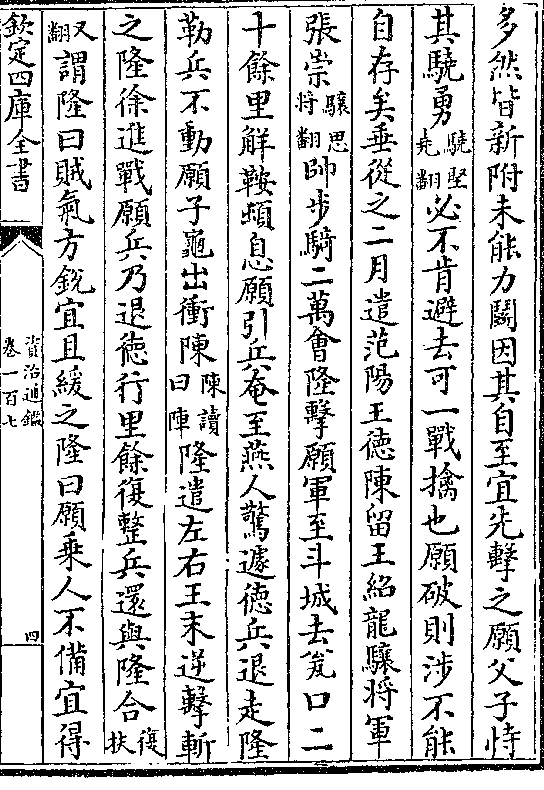 多然皆新附未能力鬬因其自至宜先擊之願父子恃
其驍勇驍堅堯翻必不肯避去可一戰擒也願破則涉不能
自存矣垂從之二月遣范陽王徳陳留王紹龍驤將軍
張崇驤思將翻帥步騎二萬會隆擊願軍至斗城去瓮口二
十餘里解鞍頓息願引兵奄至燕人驚遽徳兵退走隆
勒兵不動願子龜出衝陳陳讀曰陣隆遣左右王末逆擊斬
之隆徐進戰願兵乃退徳行里餘復整兵還與隆合復扶
又翻謂隆曰賊氣方銳宜且緩之隆曰願乗人不備宜得
欽定四庫全書
資治通鑑
卷一百七
四